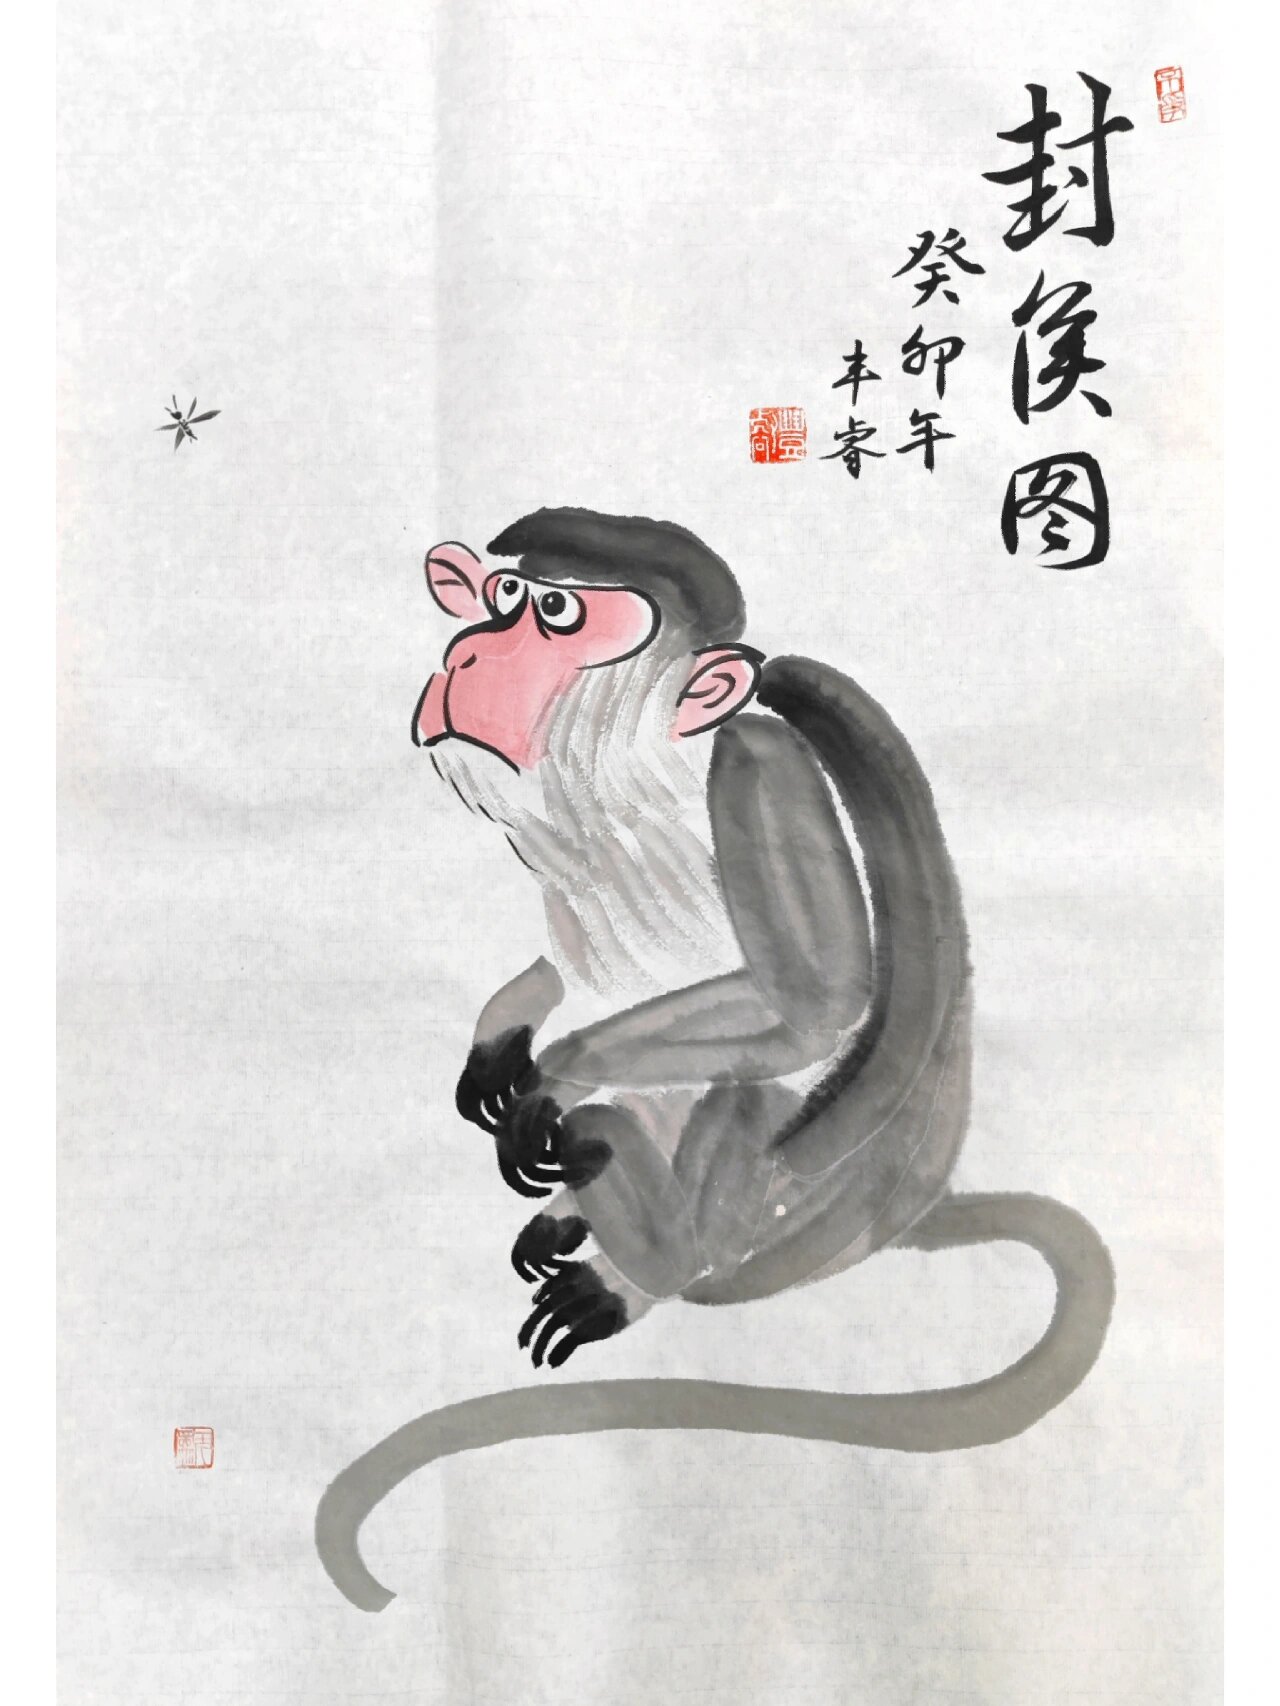 封侯图
癸卯年
丰睿